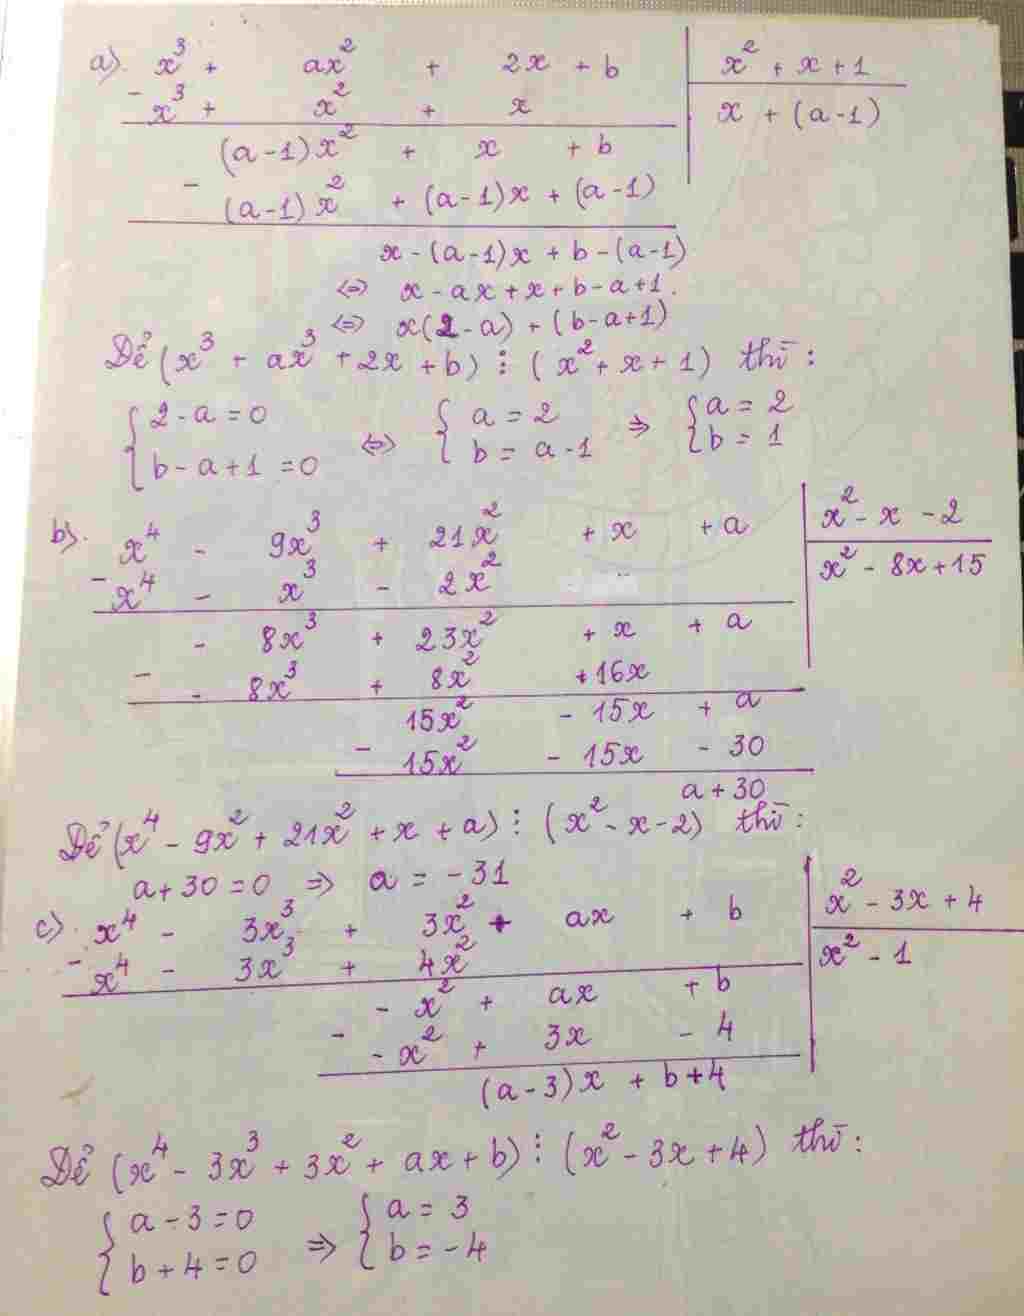 a) x³ + ax² + 2x + b | x² + x + 1
- x³ + x² + x | x + (a-1)
(a-1)x² + x + b
- (a-1)x² + (a-1)x + (a-1)
x - (a-1)x + b - (a-1)
⇔ x - ax + x + b - a + 1.
⇔ x(2-a) + (b-a+1)
Để (x³ + ax³ + 2x + b) ⋮ (x² + x + 1) thì:
{ 2-a = 0 ⇔ { a = 2 ⇒ { a = 2
{ b-a+1 = 0 { b = a-1 { b = 1
b). x⁴ - 9x³ + 21x² + x + a | x² - x - 2
- x⁴ - x³ - 2x² | x² - 8x + 15
- 8x³ + 23x² + x + a
- - 8x³ + 8x² + 16x
15x² - 15x + a
- 15x² - 15x - 30
a + 30
Để (x⁴ - 9x² + 21x² + x + a) ⋮ (x² - x - 2) thì:
a + 30 = 0 ⇒ a = -31
c). x⁴ - 3x³ + 3x² + ax + b | x² - 3x + 4
- x⁴ - 3x³ + 4x² | x² - 1
- x² + ax + b
- - x² + 3x - 4
(a-3)x + b+4
Để (x⁴ - 3x³ + 3x² + ax + b) ⋮ (x² - 3x + 4) thì:
{ a - 3 = 0 ⇒ { a = 3
{ b + 4 = 0 { b = -4